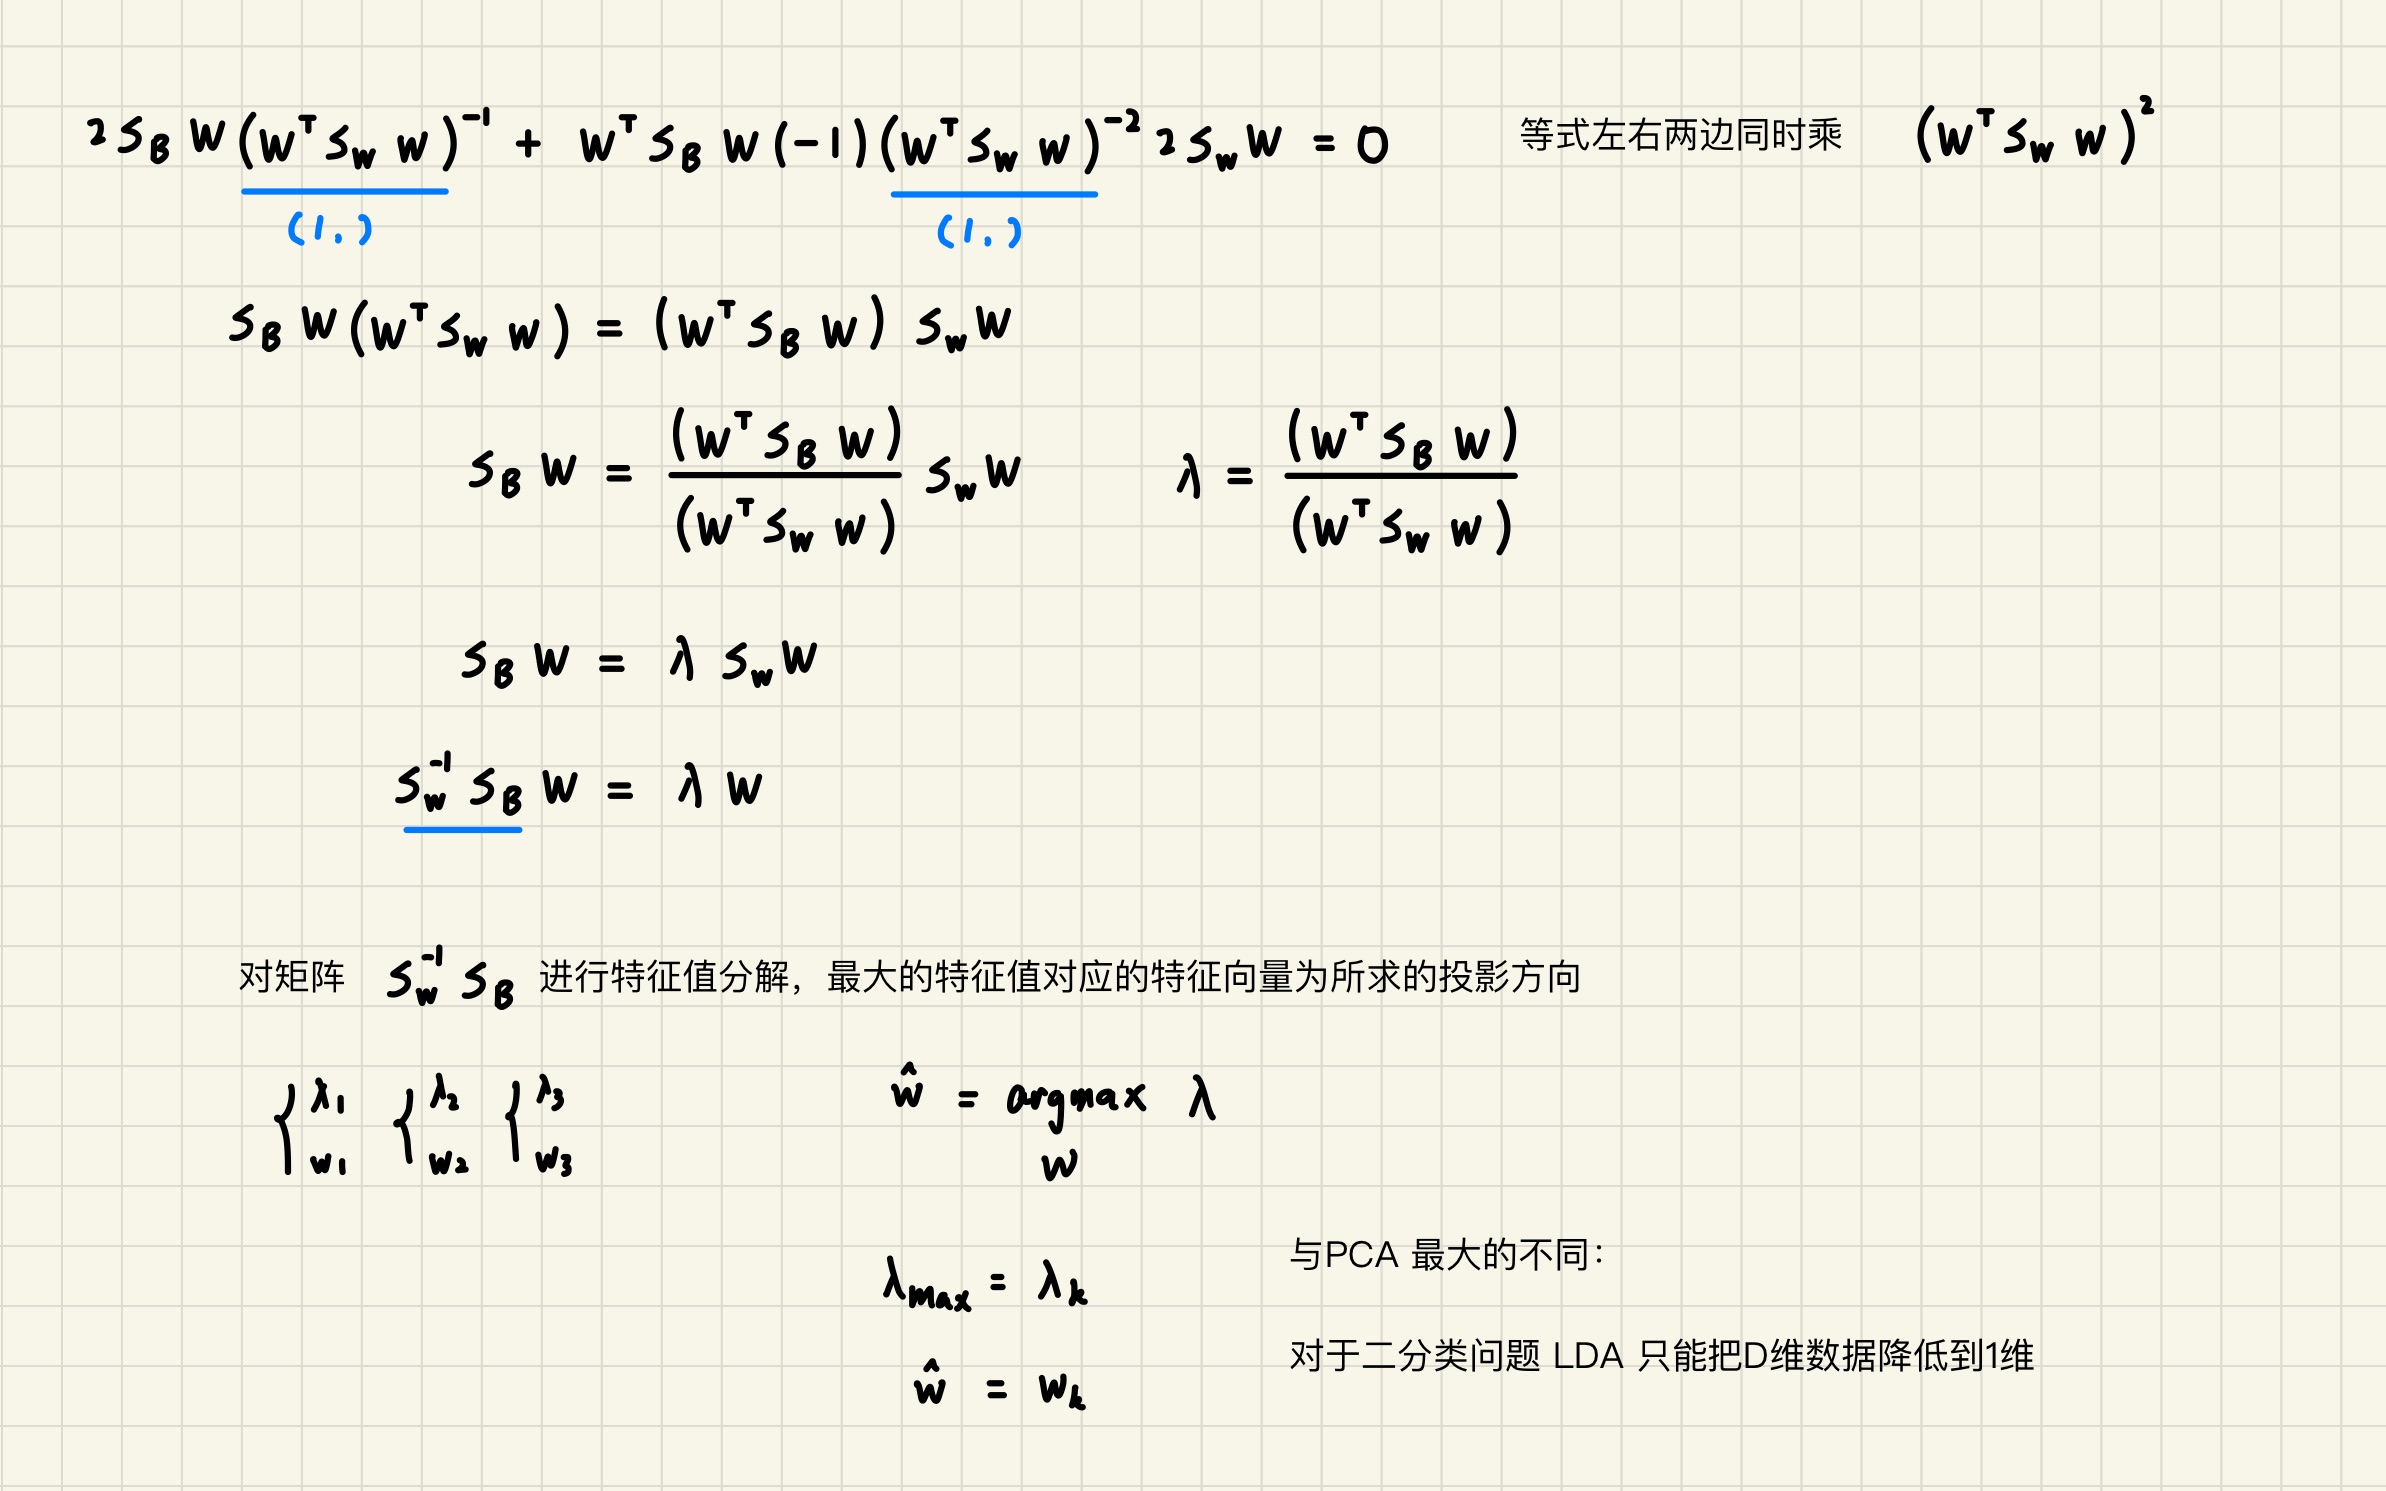 2S_B W(W^T S_w W)^{-1} + W^T S_B W(-1)(W^T S_w W)^{-2} 2S_w W = 0 等式左右两边同时乘 (W^T S_w W)^2
(1.) (1.)
S_B W(W^T S_w W) = (W^T S_B W) S_w W
S_B W = \frac{(W^T S_B W)}{(W^T S_w W)} S_w W λ = \frac{(W^T S_B W)}{(W^T S_w W)}
S_B W = λ S_w W
S_w^{-1} S_B W = λ W
对矩阵 S_w^{-1} S_B 进行特征值分解，最大的特征值对应的特征向量为所求的投影方向
{ λ_1 { λ_2 { λ_3 ŵ = argmax λ
w_1 w_2 w_3 w
与PCA 最大的不同：
λ_max = λ_k
对于二分类问题 LDA 只能把D维数据降低到1维
ŵ = w_k